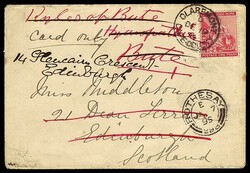 Kyles of Bute
card only
Bute
14 Glencairn Crescent
Edinburgh
Miss Middleton
91 Dean Terr
Edinburgh
Scotland
CLAREMONT
DE
ROTHESAY
95